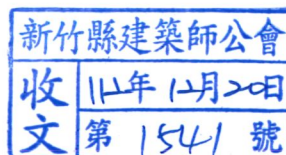 新竹縣建築師公會
收文 112年12月20日
第 1541 號